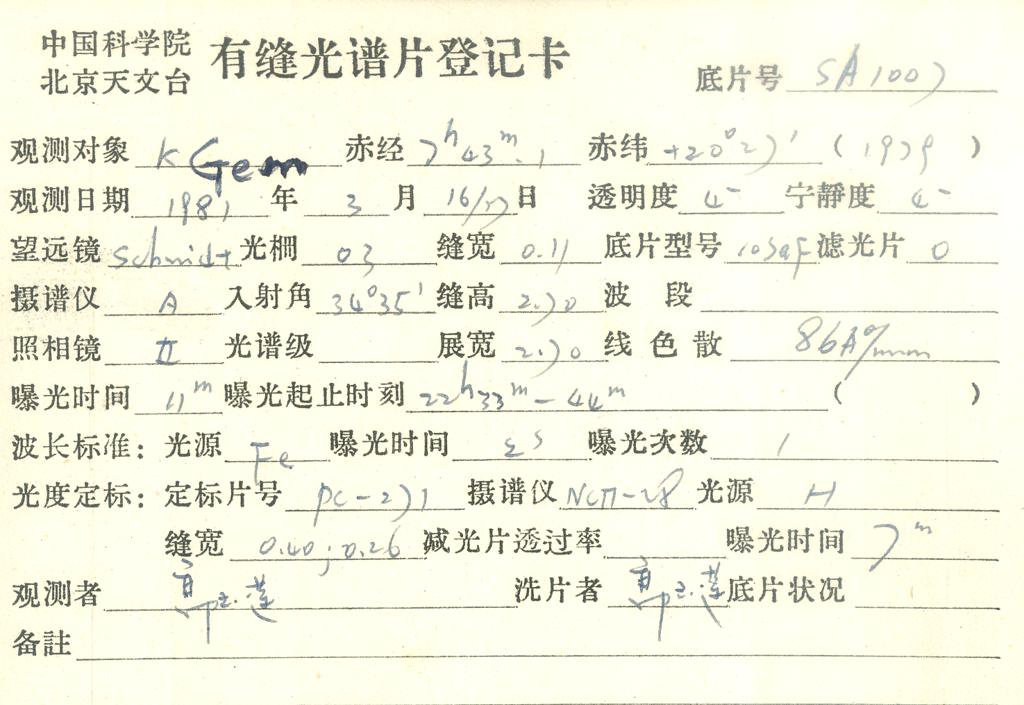 中国科学院
北京天文台
有缝光谱片登记卡
底片号 SA1007
观测对象 K Gem 赤经 7h43m.1 赤纬 +20°27′ (1979)
观测日期 1981 年 3 月 16/17 日 透明度 4- 宁静度 4-
望远镜 Schmidt 光栅 03 缝宽 0.11 底片型号 103aF 滤光片 0
摄谱仪 A 入射角 34°35′ 缝高 2.70 波段
照相镜 II 光谱级 展宽 2.70 线色散 86A°/mm
曝光时间 11m 曝光起止时刻 22h33m-44m ( )
波长标准: 光源 Fe 曝光时间 曝光次数 1
光度定标: 定标片号 PC-271 摄谱仪 ИСП-28 光源 H
缝宽 0.40;0.26 减光片透过率 曝光时间 7m
观测者 洗片者 底片状况
备註